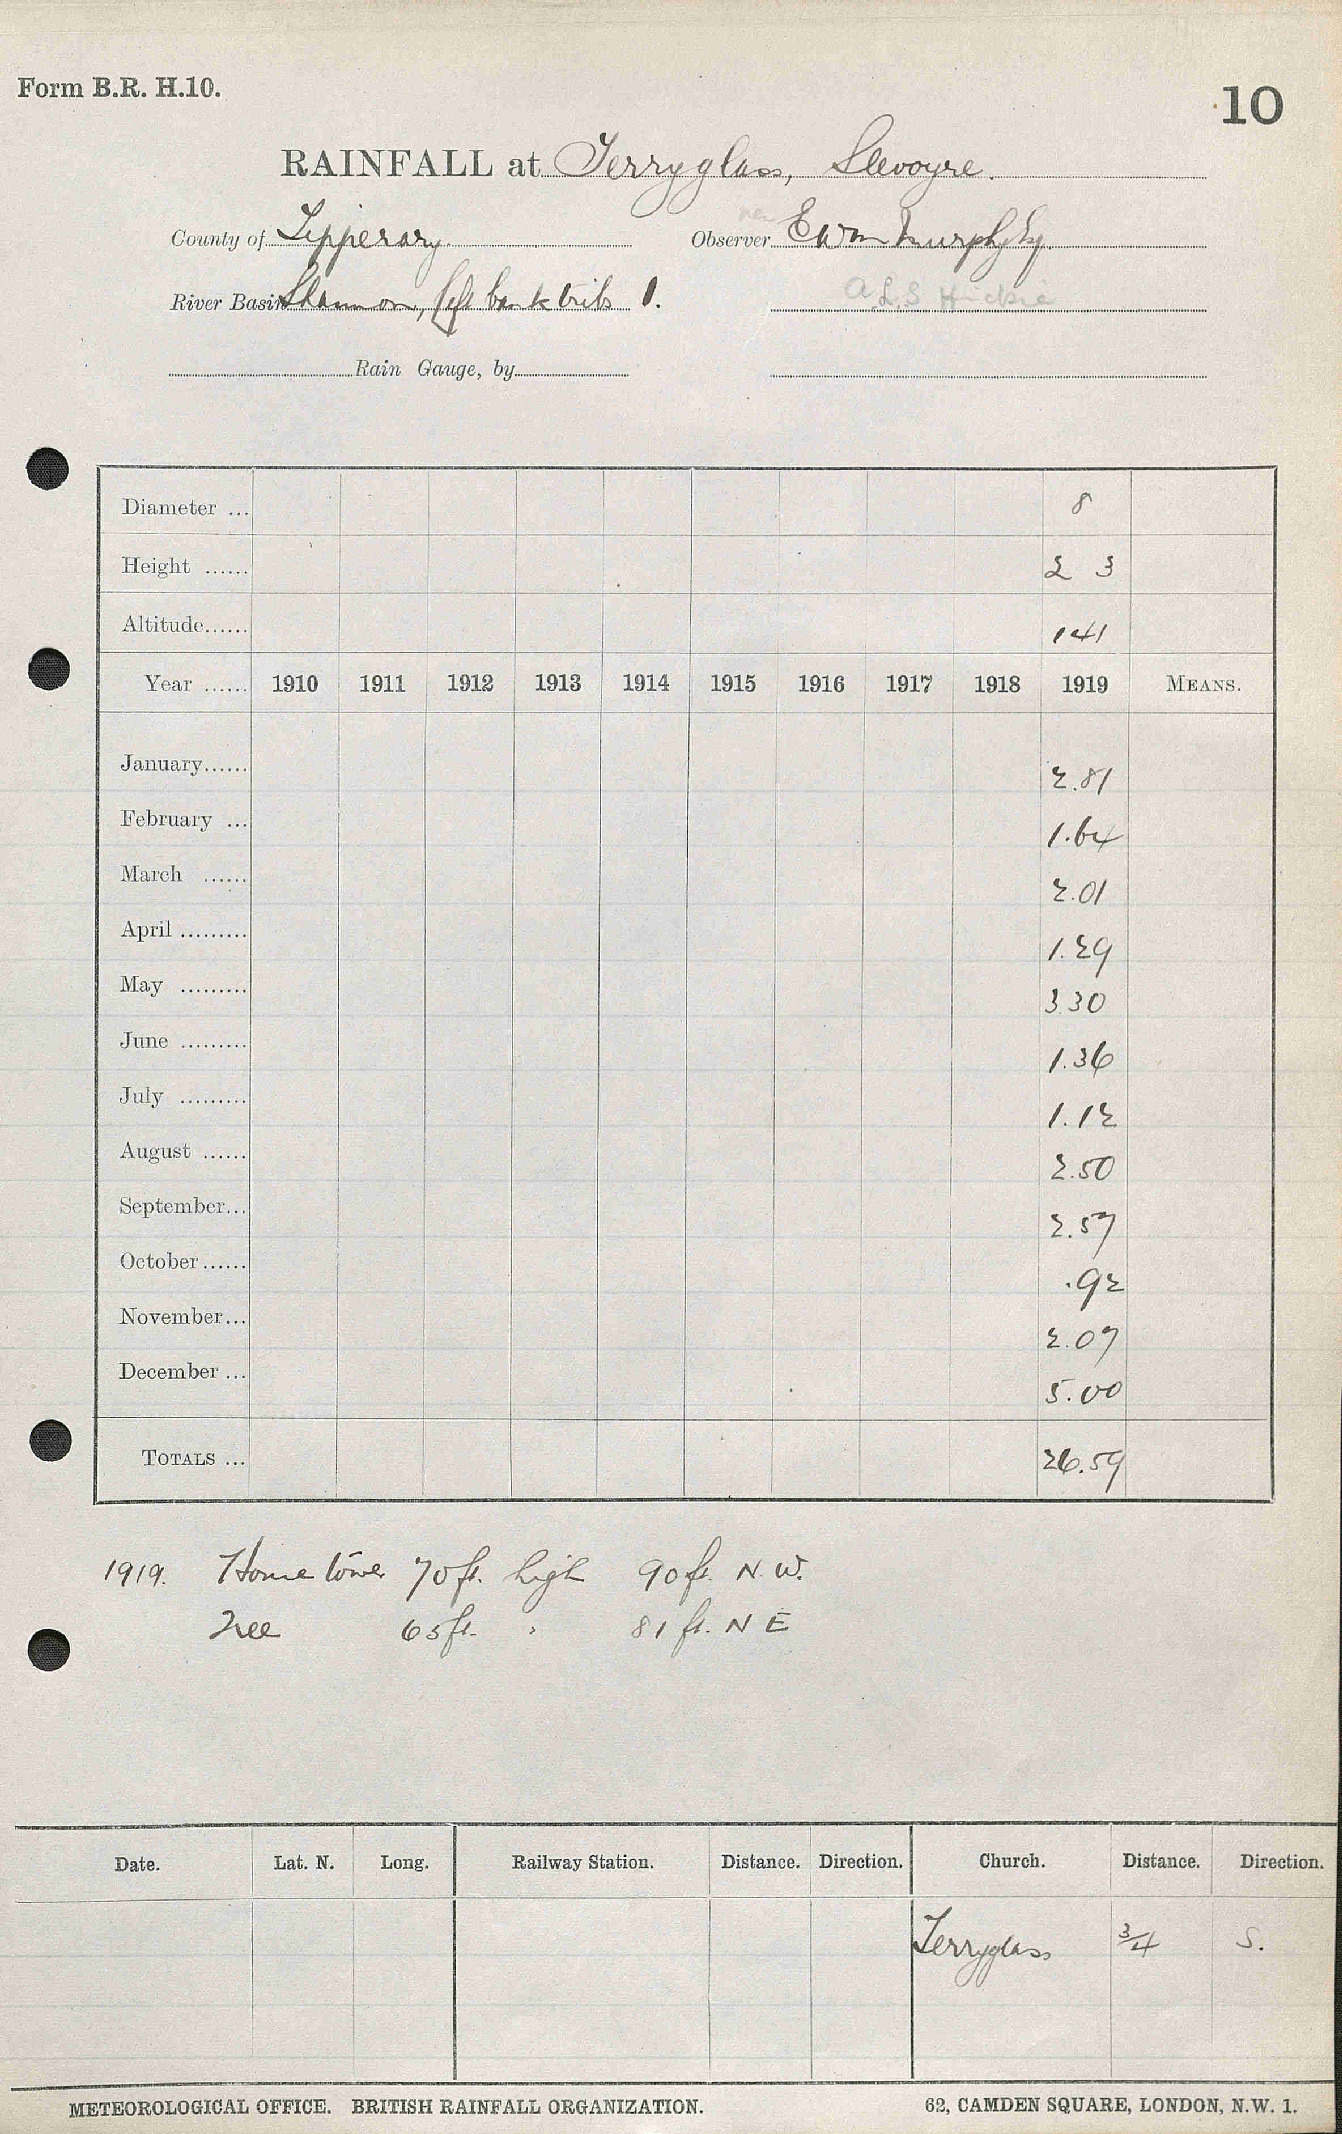 Form B.R. H.10.
10
RAINFALL at Terryglass, Slevoyre.
County of Tipperary. Observer E Wm Murphy Esq.
River Basin Shannon, left bank tribs 1. A.L.S Hickie
Rain Gauge, by
Diameter ... 8
Height ...... 2 3
Altitude...... 141
Year ...... 1910 1911 1912 1913 1914 1915 1916 1917 1918 1919 MEANS.
January...... 2.81
February ... 1.64
March ...... 2.01
April ......... 1.29
May ......... 3.30
June ......... 1.36
July ......... 1.12
August ...... 2.50
September... 2.57
October...... .92
November... 2.07
December ... 5.00
TOTALS ... 26.59
1919. Home tower 70 ft. high 90 ft. N.W.
Tree 65 ft. " 81 ft. N E
Date. Lat. N. Long. Railway Station. Distance. Direction. Church. Distance. Direction.
Terryglass 3/4 S.
METEOROLOGICAL OFFICE. BRITISH RAINFALL ORGANIZATION. 62, CAMDEN SQUARE, LONDON, N.W. 1.